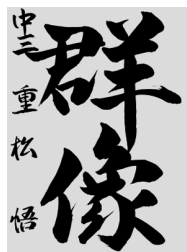 群像
中三 重松 悟